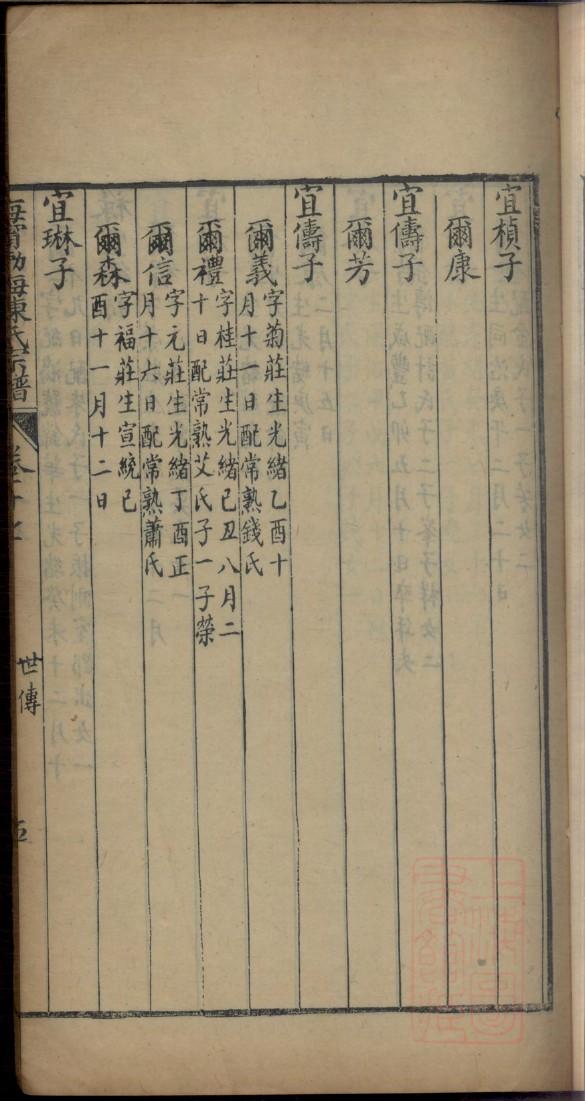 宜楨子
爾康
宜儔子
爾芳
宜儔子
爾義字菊莊生光緒乙酉十
月十一日配常熟錢氏
爾禮字桂莊生光緒己丑八月二
十日配常熟艾氏子一子榮
爾信字元莊生光緒丁酉正
月十六日配常熟蕭氏
爾森字福莊生宣統己
酉十一月十二日
宜琳子
氏宗譜
世傳
五